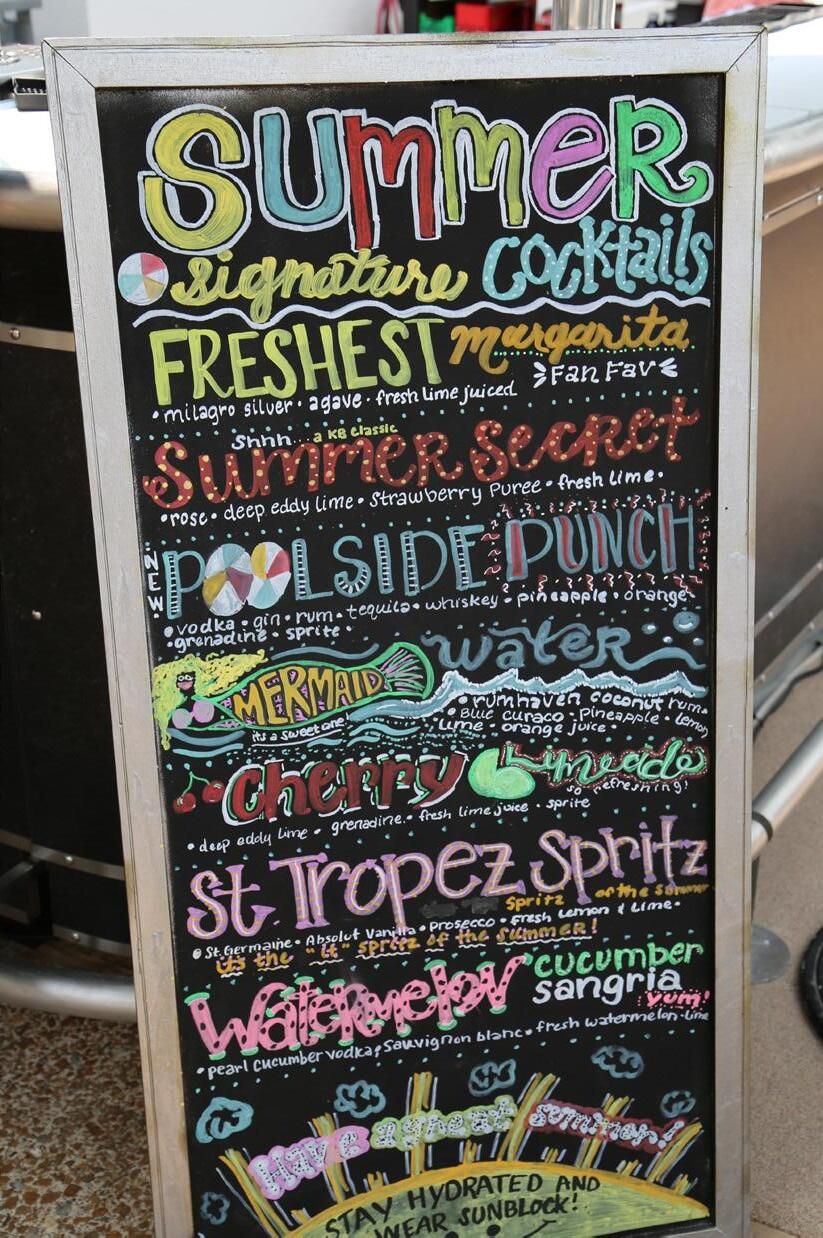 SUMMER
signature cocktails
FRESHEST margarita
Fan Fav
• milagro silver • agave • fresh lime juiced
Shhh... a KB Classic
Summer Secret
• rose • deep eddy lime • Strawberry Puree • fresh lime •
NEW POOLSIDE PUNCH
• vodka • gin • rum • tequila • whiskey • pineapple • orange
• grenadine • sprite
MERMAID water
its a sweet one
• rumhaven coconut rum •
• Blue curaco • Pineapple • lemon
lime • orange juice •
Cherry Limeade
so refreshing!
• deep eddy lime • grenadine • fresh lime juice • sprite
St Tropez Spritz
Spritz of the summer
• St. Germaine • Absolut Vanilla • Prosecco • Fresh Lemon & Lime •
it's the "it" spritz of the summer!
Watermelon cucumber
sangria
yum!
• pearl cucumber vodka, Sauvignon blanc • fresh watermelon • lime
Have a great summer!
STAY HYDRATED AND
WEAR SUNBLOCK!